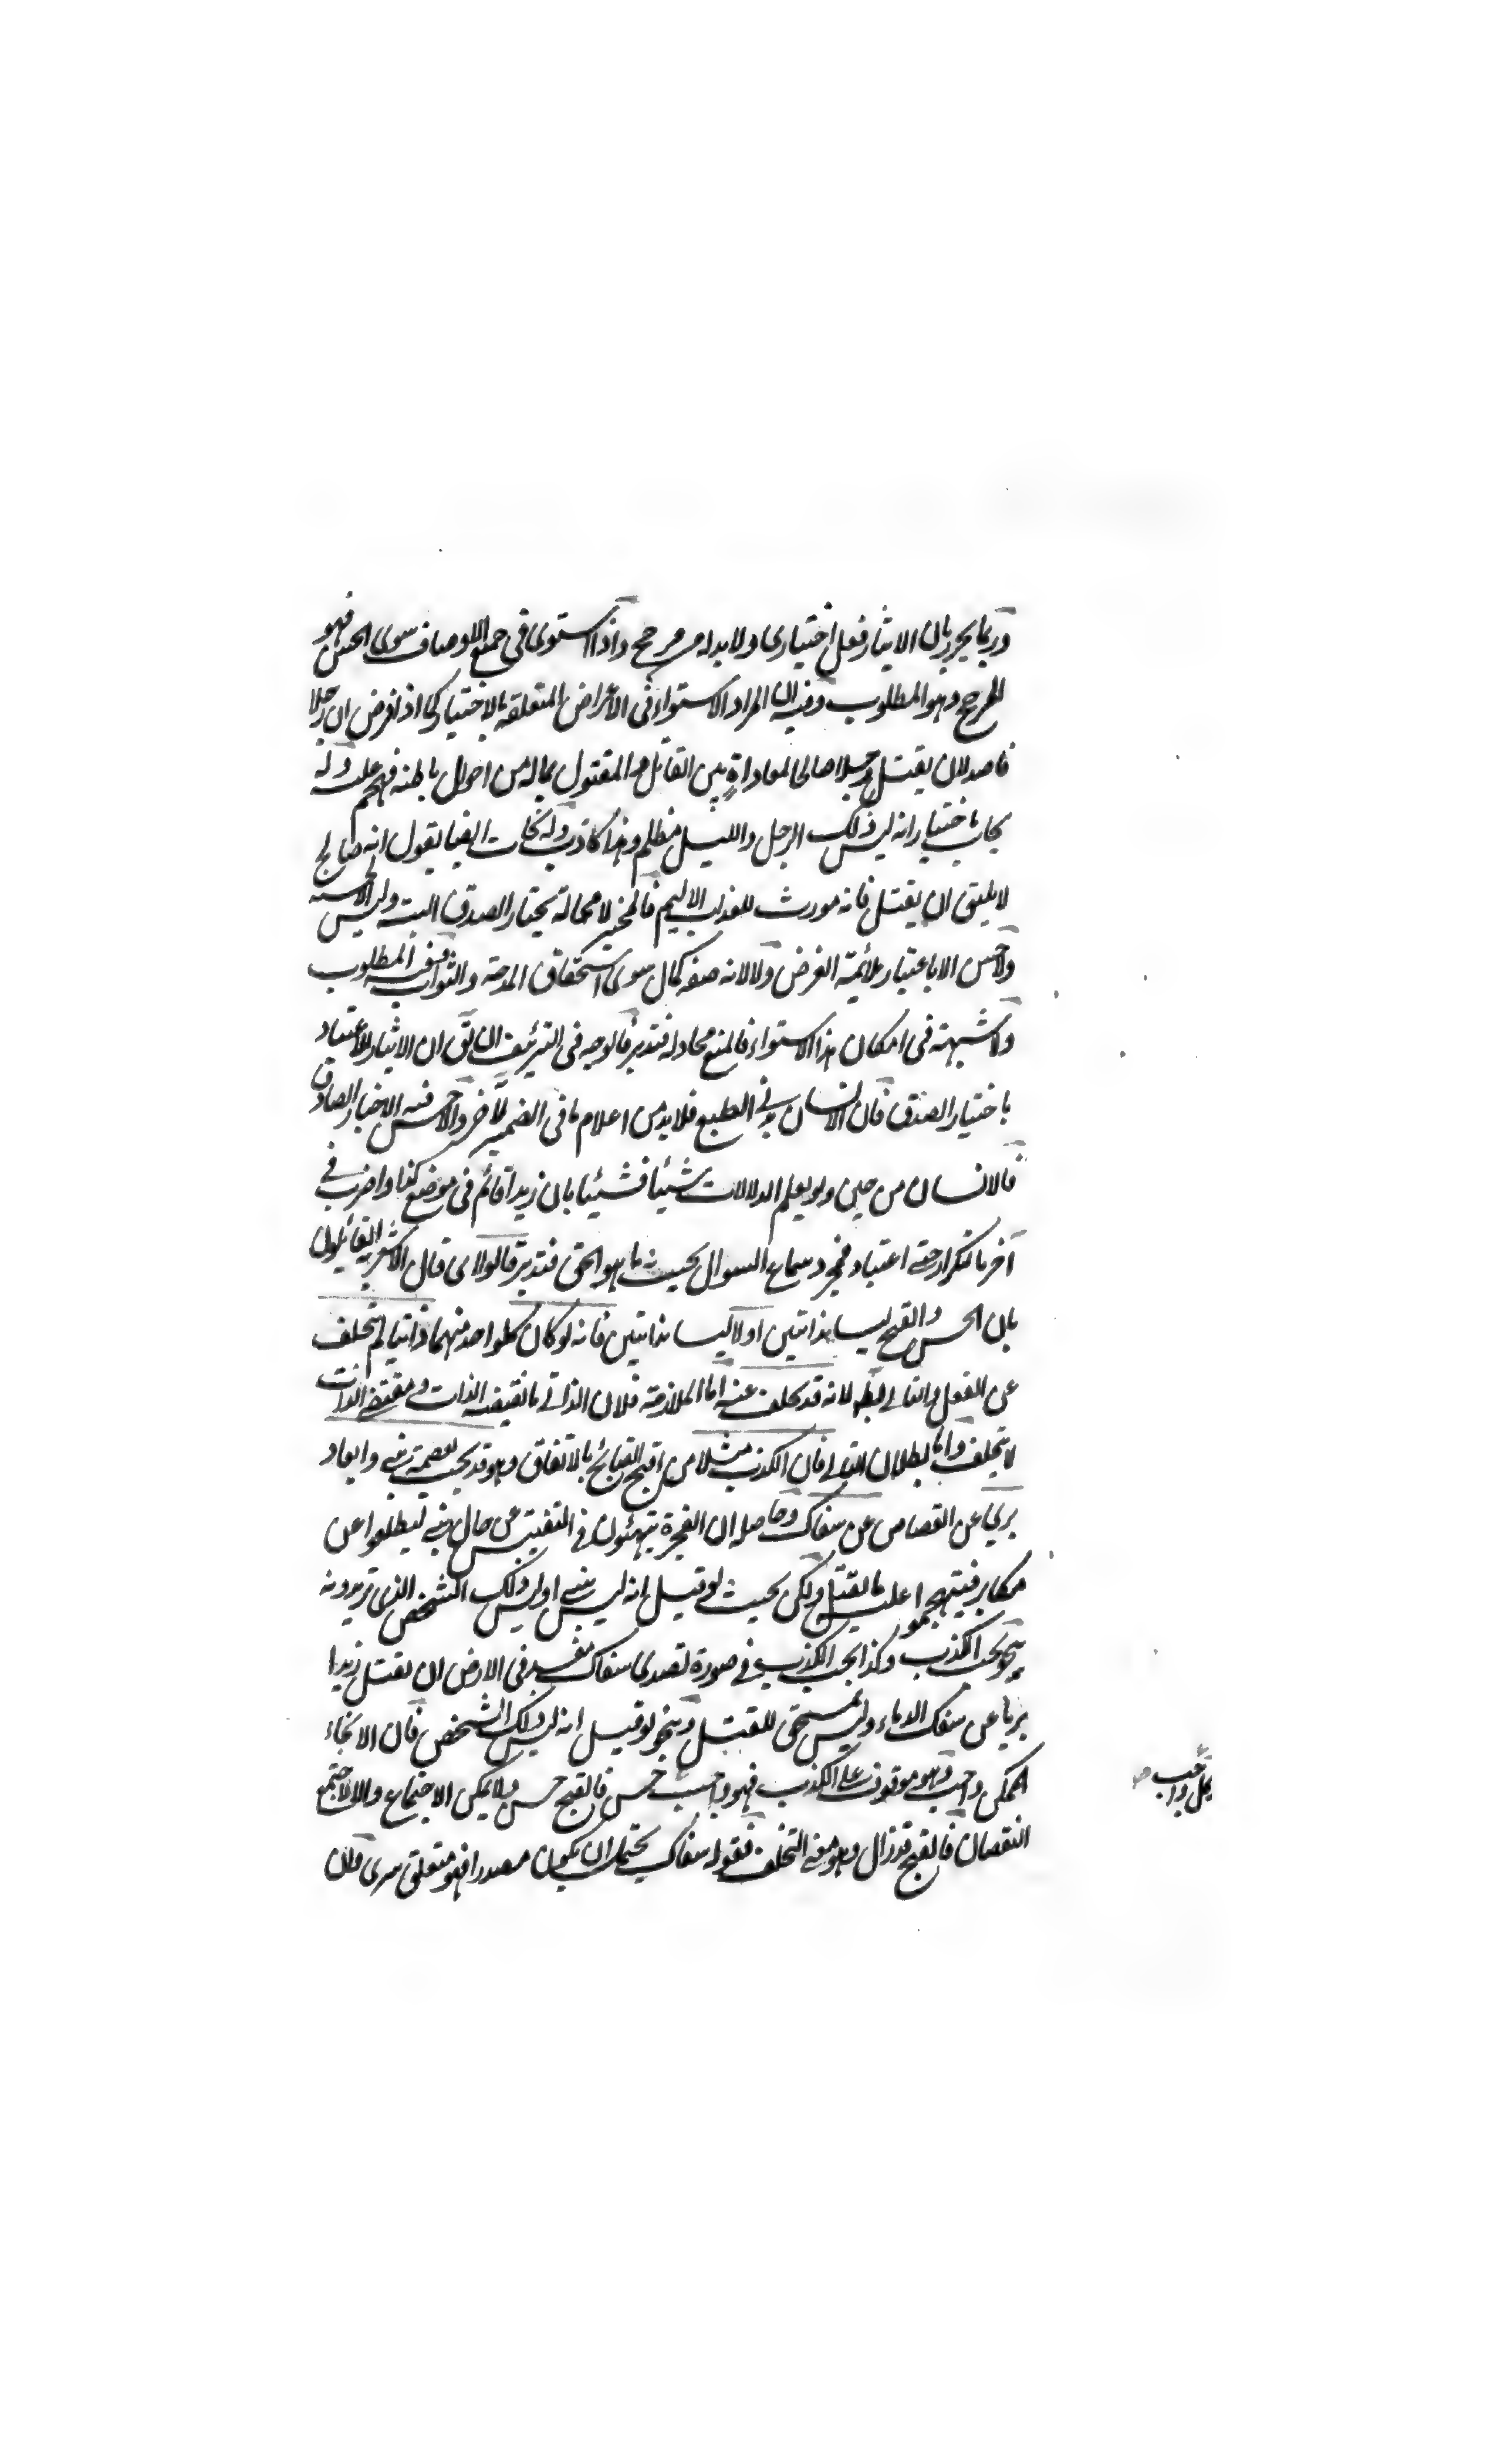 وربما يحرر بان الايثار فعل اختياري ولا بد له من مرجح واذا استوى في جميع الاوصاف سوى الحسن فهو
المرجح وهو المطلوب وفيه ان المراد الاستواء في الاغراض المتعلقة بالاختيار كما اذا فرض ان رجلا
قاصد لان يقتل رجلا صالحا لمعاداة بين القاتل والمقتول بماله من احوال باطنه فهجم عليه وله
يجاب باختيار انه ليس ذلك الرجل والليل مظلم وهذا كاذب وله نجات ايضا بقول انه صالح
لا يليق ان يقتل فانه مورث للعذاب الاليم فالمخير لا محالة يختار الصدق البتة وليس الاحسنية
ولا حسن الا باعتبار ملائمة الغرض ولا لانه صفة كمال سوى استحقاق المدحة والثواب ففيه المطلوب
ولا شبهة في امكان هذا الاستواء فالمنع مجادلة فتدبر فالوجه في التزئيف ان يق ان الايثار للاعتياد
باختيار الصدق فان الانسان مدني الطبع فلا بد من اعلام ما في الضمير للآخر والاحسن فيه الاخبار الصادق
فالانسان من حين ولد يعلم الدلالات شيئا فشيئا بان زيدا قائم في موضع كذا واضرب في
آخر بالتكرار حتى اعتياد فبمجرد سماع السوال يجيب بما هو الحق فتدبر قالوا اولا اي قال الاشعرية القائلون
بان الحسن والقبح ليسا بذاتين اولا ليسا بذاتيين فانه لو كان كل واحد منهما ذاتيا لم يتخلف
عن الفعل والتالي بط لانه قد تخلف عنه اما الملازمة فلان الذاتي ما تقتضيه الذات ومقتضى الذات
لا يتخلف واما بطلان التالي فان الكذب مثلا من اقبح القبائح بالاتفاق وهو قد يجب لعصمة نبي وابعاد
بريء عن القصاص عن سفاك وحاصله ان الفجرة يتهيئون في التفتيش عن حال نبي ليطلعوا عن
مكانه فيهجموا عليه بالقتل ولكن بحيث لو قيل انه ليس بنبي او ليس ذلك الشخص الذي تريدونه
ينجو يجب الكذب وكذا يجب الكذب في صورة تصدى سفاك مفسد في الارض ان يقتل زيدا
بريا عن سفك الدماء وليس بمستحق للقتل وينجو لو قيل انه ليس ذلك الشخص فان الانجاء
الممكن واجب وهو موقوف على الكذب فهو واجب حسن فالقبح حسن ولا يمكن الاجتماع والا لاجتمع
النقيضان فالقبح قد زال وهو معنى التخلف فقوله سفاك يحتمل ان يكون مصدرا فهو متعلق بريء فان
كل واجب